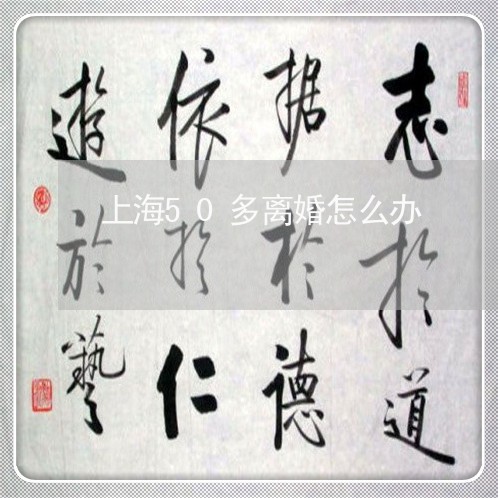 志於道
据於德
依於仁
遊於藝
上海50多离婚怎么办